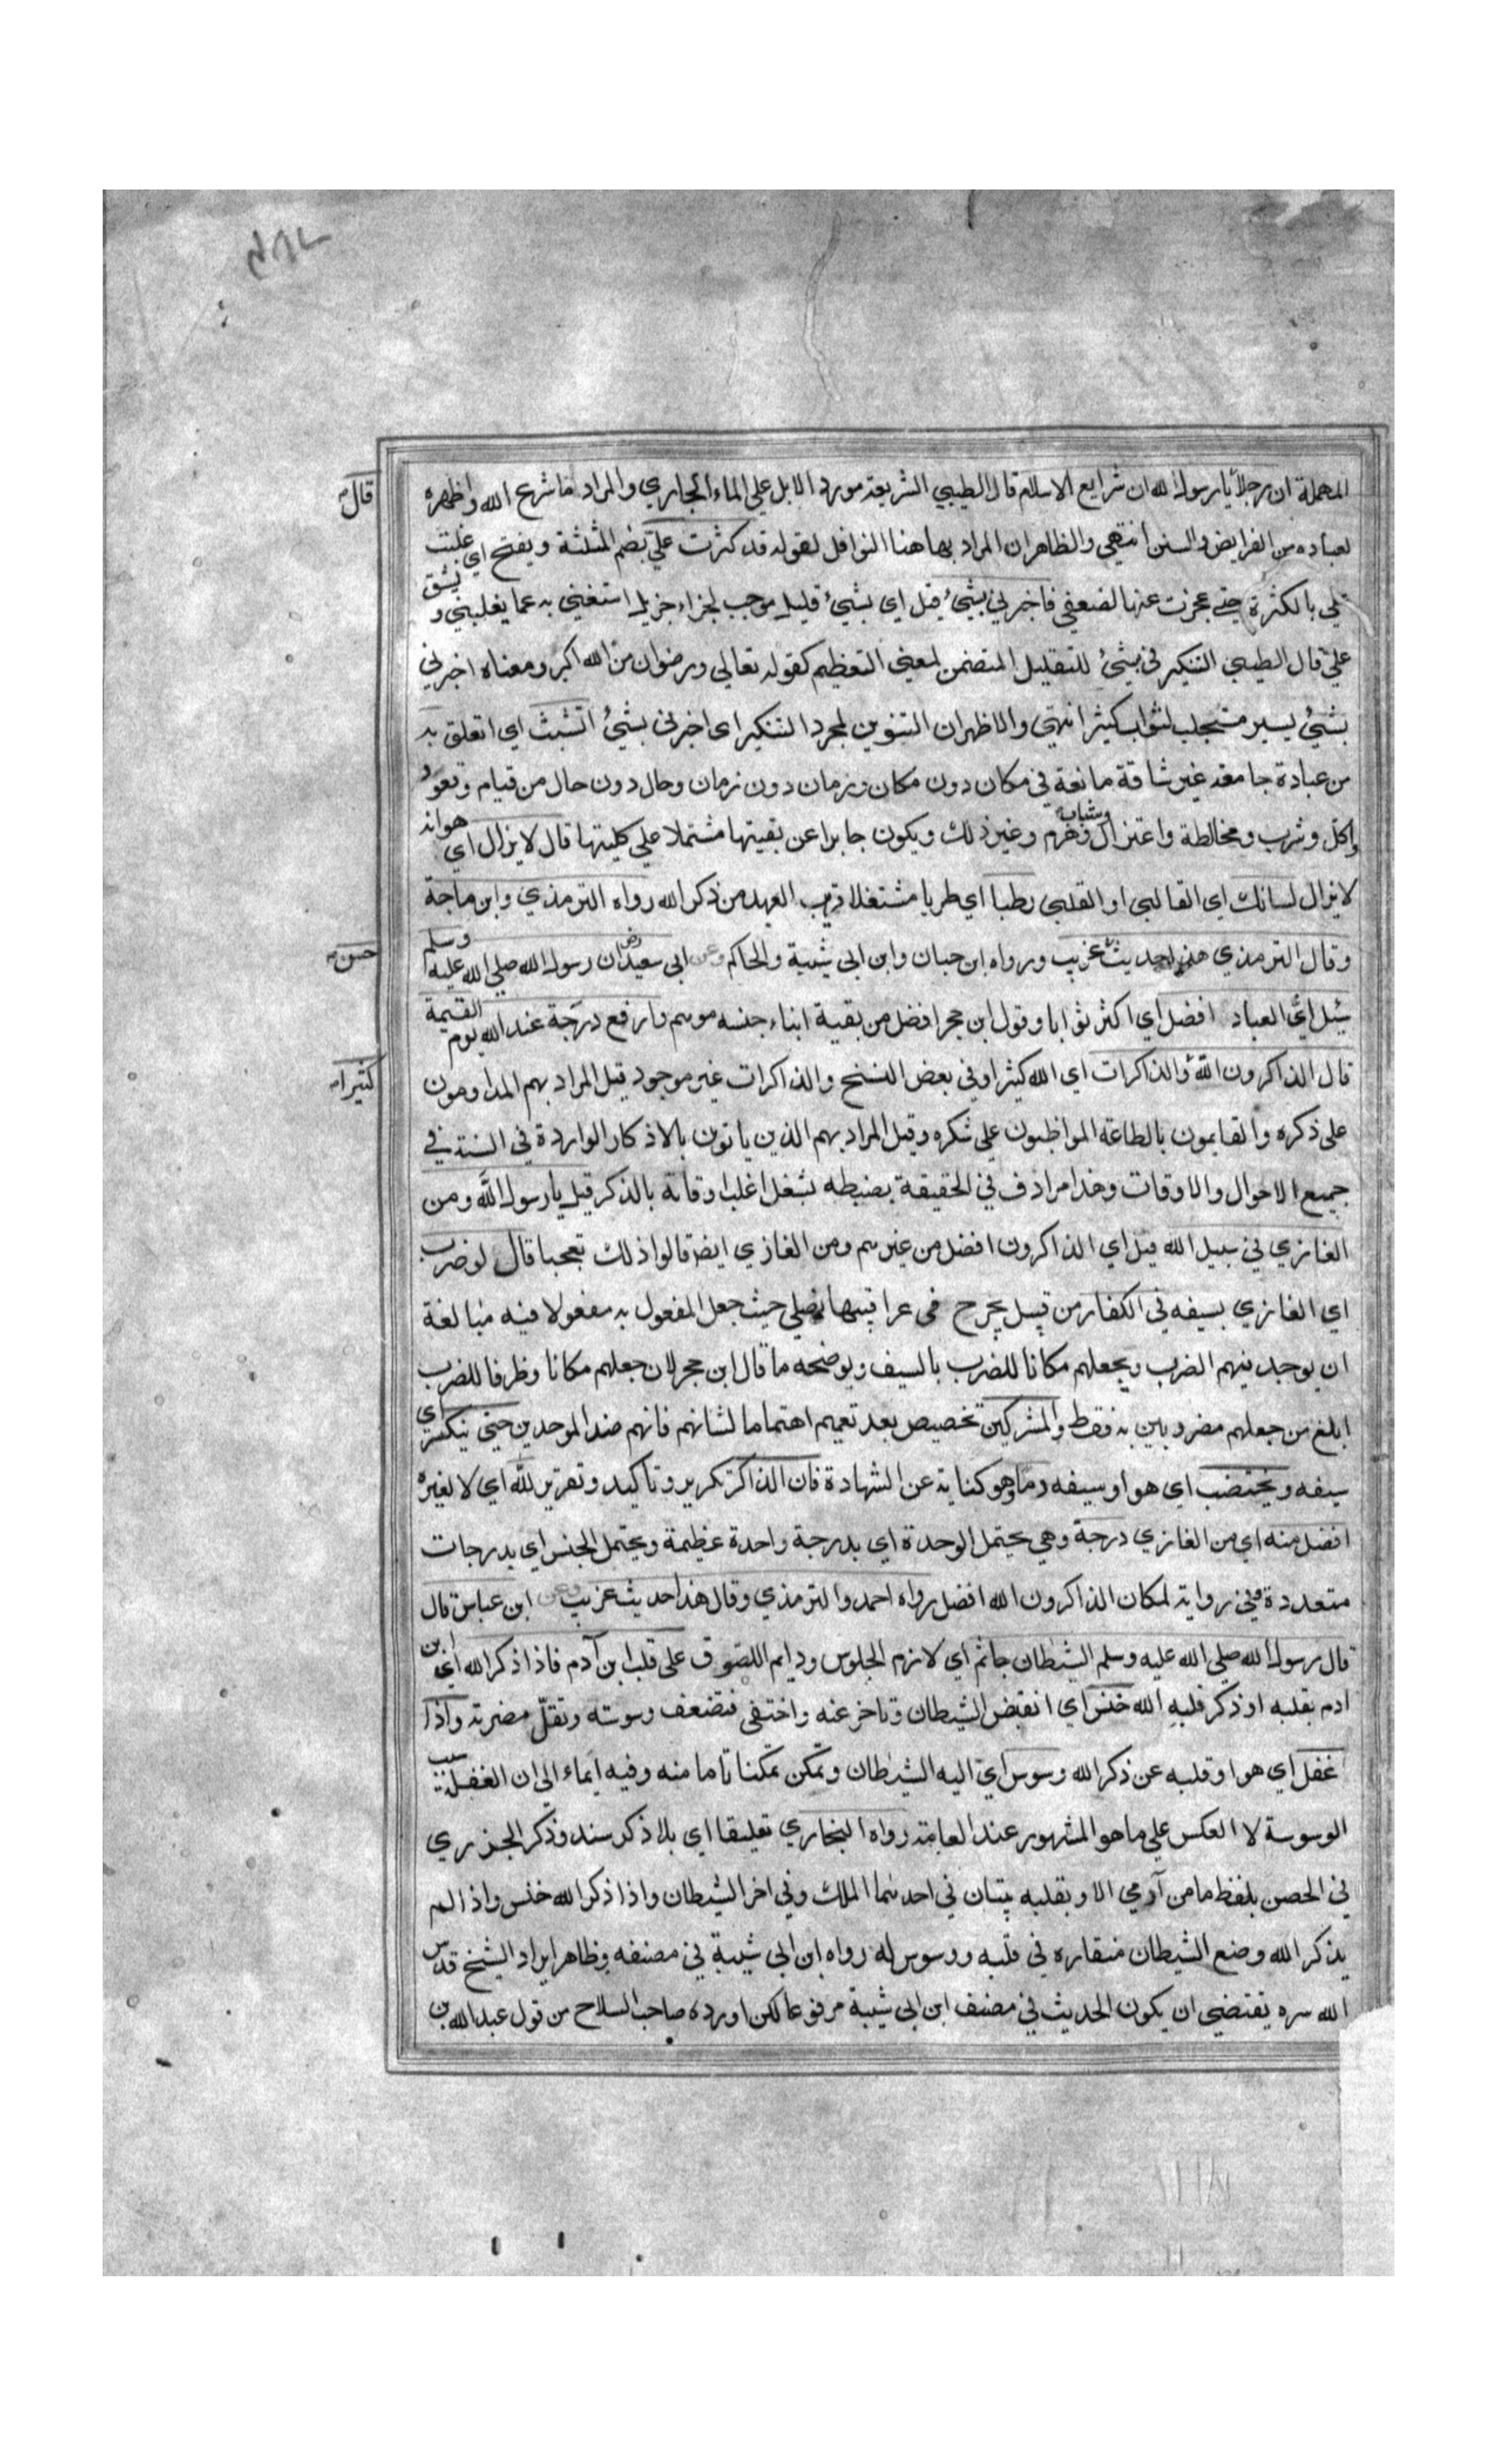 المهملة ان رجلا يا رسول الله ان شرايع الاسلام قال الطيبي الشريعة مورد الابل علي الماء الجاري والمراد ما شرع الله واظهره
قال
لعباده من الفرايض والسنن انتهي والظاهر ان المراد بها هنا النوافل لقوله قد كثرت عليّ بضم المثلثة ويفتح اي غلبت
علي بالكثرة حتي عجزت عنها لضعفي فاخبرني بشيءٍ قيل اي بشيءٍ قليل موجب لجزاء جزيل استغني به عما يغلبني ويشق
عليّ قال الطيبي التنكير في بشيءٍ للتقليل المتضمن لمعني التعظيم كقوله تعالي ورضوان من الله اكبر ومعناه اخبرني
بشيءٍ يسير مستجلب لثواب كثير انتهي والاظهر ان التنوين لمجرد التنكير اي اخبرني بشيءٍ اتشبث اي اتعلق به
من عبادة جامعة غير شاقة مانعة في مكان دون مكان وزمان دون زمان وحال دون حال من قيام وقعود
واكل وشرب ومخالطة واعتزال وشباب وهرم وغير ذلك ويكون جابرا عن بقيتها مشتملا علي كليتها قال لا يزال اي هو انه
لا يزال لسانك اي القالبي او القلبي رطبا اي طريا مشتغلا قريب العهد من ذكر الله رواه الترمذي وابن ماجة
وقال الترمذي هذا حديث غريب ورواه ابن حبان وابن ابي شيبة والحاكم وعن ابي سعيد رض ان رسول الله صلي الله عليه وسلم
حسن
سئل ايّ العباد افضل اي اكثر ثوابا وقول ابن حجر افضل من بقية ابناء جنسه موهم وارفع درجة عند الله يوم القيمة
قال الذاكرون الله والذاكرات اي الله كثيرا وفي بعض النسخ والذاكرات غير موجود قيل المراد بهم المداومون
كثيرا
علي ذكره والقايمون بالطاعة المواظبون علي شكره وقيل المراد بهم الذين ياتون بالاذكار الواردة في السنة في
جميع الاحوال والاوقات وهذا مرادف في الحقيقة بضبطه بشغل اغلب اوقاته بالذكر قيل يا رسول الله ومن
الغازي في سبيل الله قيل اي الذاكرون افضل من غيرهم ومن الغازي ايضا قالوا ذلك تعجبا قال لو ضرب
اي الغازي بسيفه في الكفار من قبيل يجرح في عراقيبها نصلي حيث جعل المفعول به مفعولا فيه مبالغة
ان يوجد فيهم الضرب ويجعلهم مكانا للضرب بالسيف ويوضحه ما قال ابن حجر لان جعلهم مكانا وظرفا للضرب
ابلغ من جعلهم مضروبين به فقط والمشركين تخصيص بعد تعميم اهتماما لشانهم فانهم ضد الموحدين حتي ينكسر اي
سيفه ويختضب اي هو او سيفه دما وهو كناية عن الشهادة فان الذاكر تكرير وتاكيد وتقرير لله اي لا لغيره
افضل منه اي من الغازي درجة وهي يحتمل الوحدة اي بدرجة واحدة عظيمة ويحتمل الجنس اي بدرجات
متعددة وفي رواية لمكان الذاكرون الله افضل رواه احمد والترمذي وقال هذا حديث غريب وعن ابن عباس قال
قال رسول الله صلي الله عليه وسلم الشيطان جاثم اي لازم الجلوس ودايم اللصوق علي قلب ابن آدم فاذا ذكر الله اي ابن
ادم بقلبه او ذكر قلبه الله خنس اي انقبض الشيطان وتاخر عنه واختفي فتضعف وسوسته وتقلّ مضرته واذا
غفل اي هو او قلبه عن ذكر الله وسوس اي اليه الشيطان وتمكن تمكنا تاما منه وفيه ايماء الي ان الغفلة سبب
الوسوسة لا العكس علي ما هو المشهور عند العامة رواه البخاري تعليقا اي بلا ذكر سند وذكر الجزري
في الحصن بلفظ ما من آدمي الا وبقلبه بيتان في احدهما الملك وفي اخر الشيطان واذا ذكر الله خنس واذا لم
يذكر الله وضع الشيطان منقاره في قلبه ووسوس له رواه ابن ابي شيبة في مصنفه وظاهر ايراد الشيخ قدس
الله سره يقتضي ان يكون الحديث في مصنف ابن ابي شيبة مرفوعا لكن اورده صاحب السلاح من قول عبد الله بن